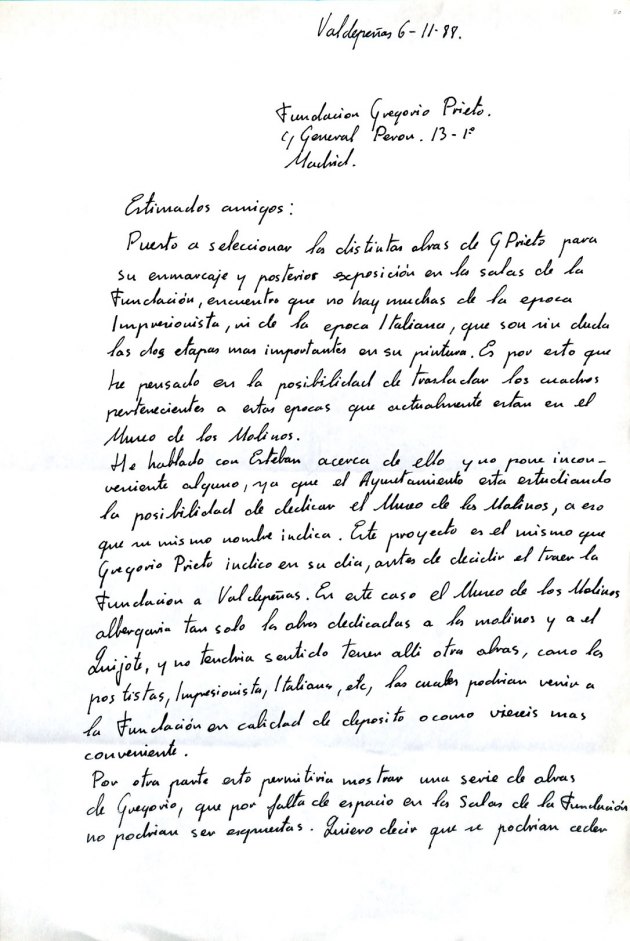 Valdepeñas 6-11-88.
Fundacion Gregorio Prieto.
c/ General Peron. 13-1º
Madrid.
Estimados amigos:
Puesto a seleccionar las distintas obras de G Prieto para
su enmarcaje y posterior exposición en las salas de la
Fundación, encuentro que no hay muchas de la epoca
Impresionista, ni de la epoca Italiana, que son sin duda
las dos etapas mas importantes en su pintura. Es por esto que
he pensado en la posibilidad de trasladar los cuadros
pertenecientes a estas epocas que actualmente estan en el
Museo de los Molinos.
He hablado con Esteban acerca de ello y no pone incon-
veniente alguno, ya que el Ayuntamiento esta estudiando
la posibilidad de dedicar el Museo de los Molinos, a eso
que su mismo nombre indica. Este proyecto es el mismo que
Gregorio Prieto indico en su dia, antes de decidir el traer la
Fundacion a Valdepeñas. En este caso el Museo de los Molinos
albergaria tan solo las obras dedicadas a los molinos y a el
Quijote, y no tendria sentido tener alli otra obras, como las
postistas, Impresionista, Italiana, etc, las cuales podrian venir a
la Fundación en calidad de deposito o como vieseis mas
conveniente.
Por otra parte esto permitiria mostrar una serie de obras
de Gregorio, que por falta de espacio en las Salas de la Fundación
no podrian ser expuestas. Quiero decir que se podrian ceder